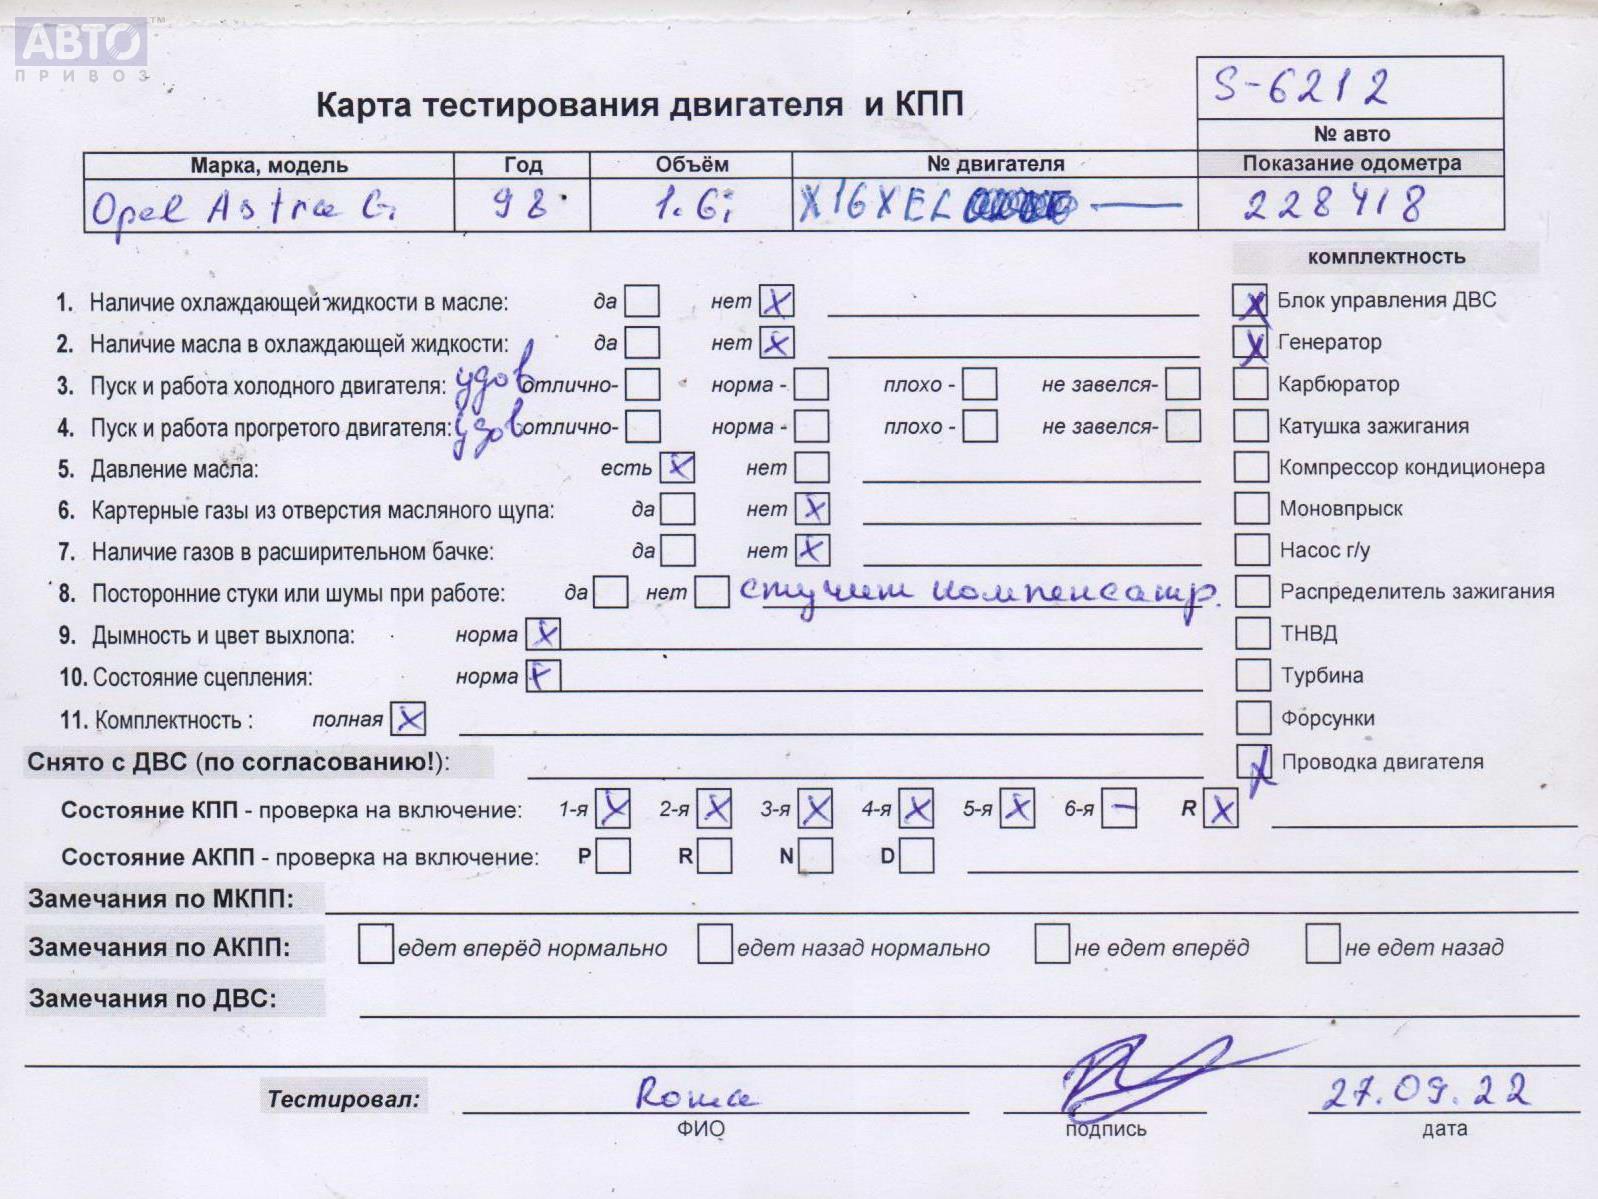 АВТО™
ПРИВОЗ
S-6212
Карта тестирования двигателя и КПП
№ авто
Марка, модель Год Объём № двигателя Показание одометра
Opel Astra G 98 1.6i X16XEL — 228418
комплектность
1. Наличие охлаждающей жидкости в масле: да нет X Блок управления ДВС X
2. Наличие масла в охлаждающей жидкости: да нет X Генератор X
3. Пуск и работа холодного двигателя: удов отлично- норма - плохо - не завелся- Карбюратор
4. Пуск и работа прогретого двигателя: удов отлично- норма - плохо - не завелся- Катушка зажигания
5. Давление масла: есть X нет Компрессор кондиционера
6. Картерные газы из отверстия масляного щупа: да нет X Моновпрыск
7. Наличие газов в расширительном бачке: да нет X Насос г/у
8. Посторонние стуки или шумы при работе: да нет стучит компенсатр. Распределитель зажигания
9. Дымность и цвет выхлопа: норма X ТНВД
10. Состояние сцепления: норма X Турбина
11. Комплектность : полная X Форсунки
Снято с ДВС (по согласованию!): X Проводка двигателя
Состояние КПП - проверка на включение: 1-я X 2-я X 3-я X 4-я X 5-я X 6-я — R X
Состояние АКПП - проверка на включение: P R N D
Замечания по МКПП:
Замечания по АКПП: едет вперёд нормально едет назад нормально не едет вперёд не едет назад
Замечания по ДВС:
Тестировал: Рома 27.09.22
ФИО подпись дата